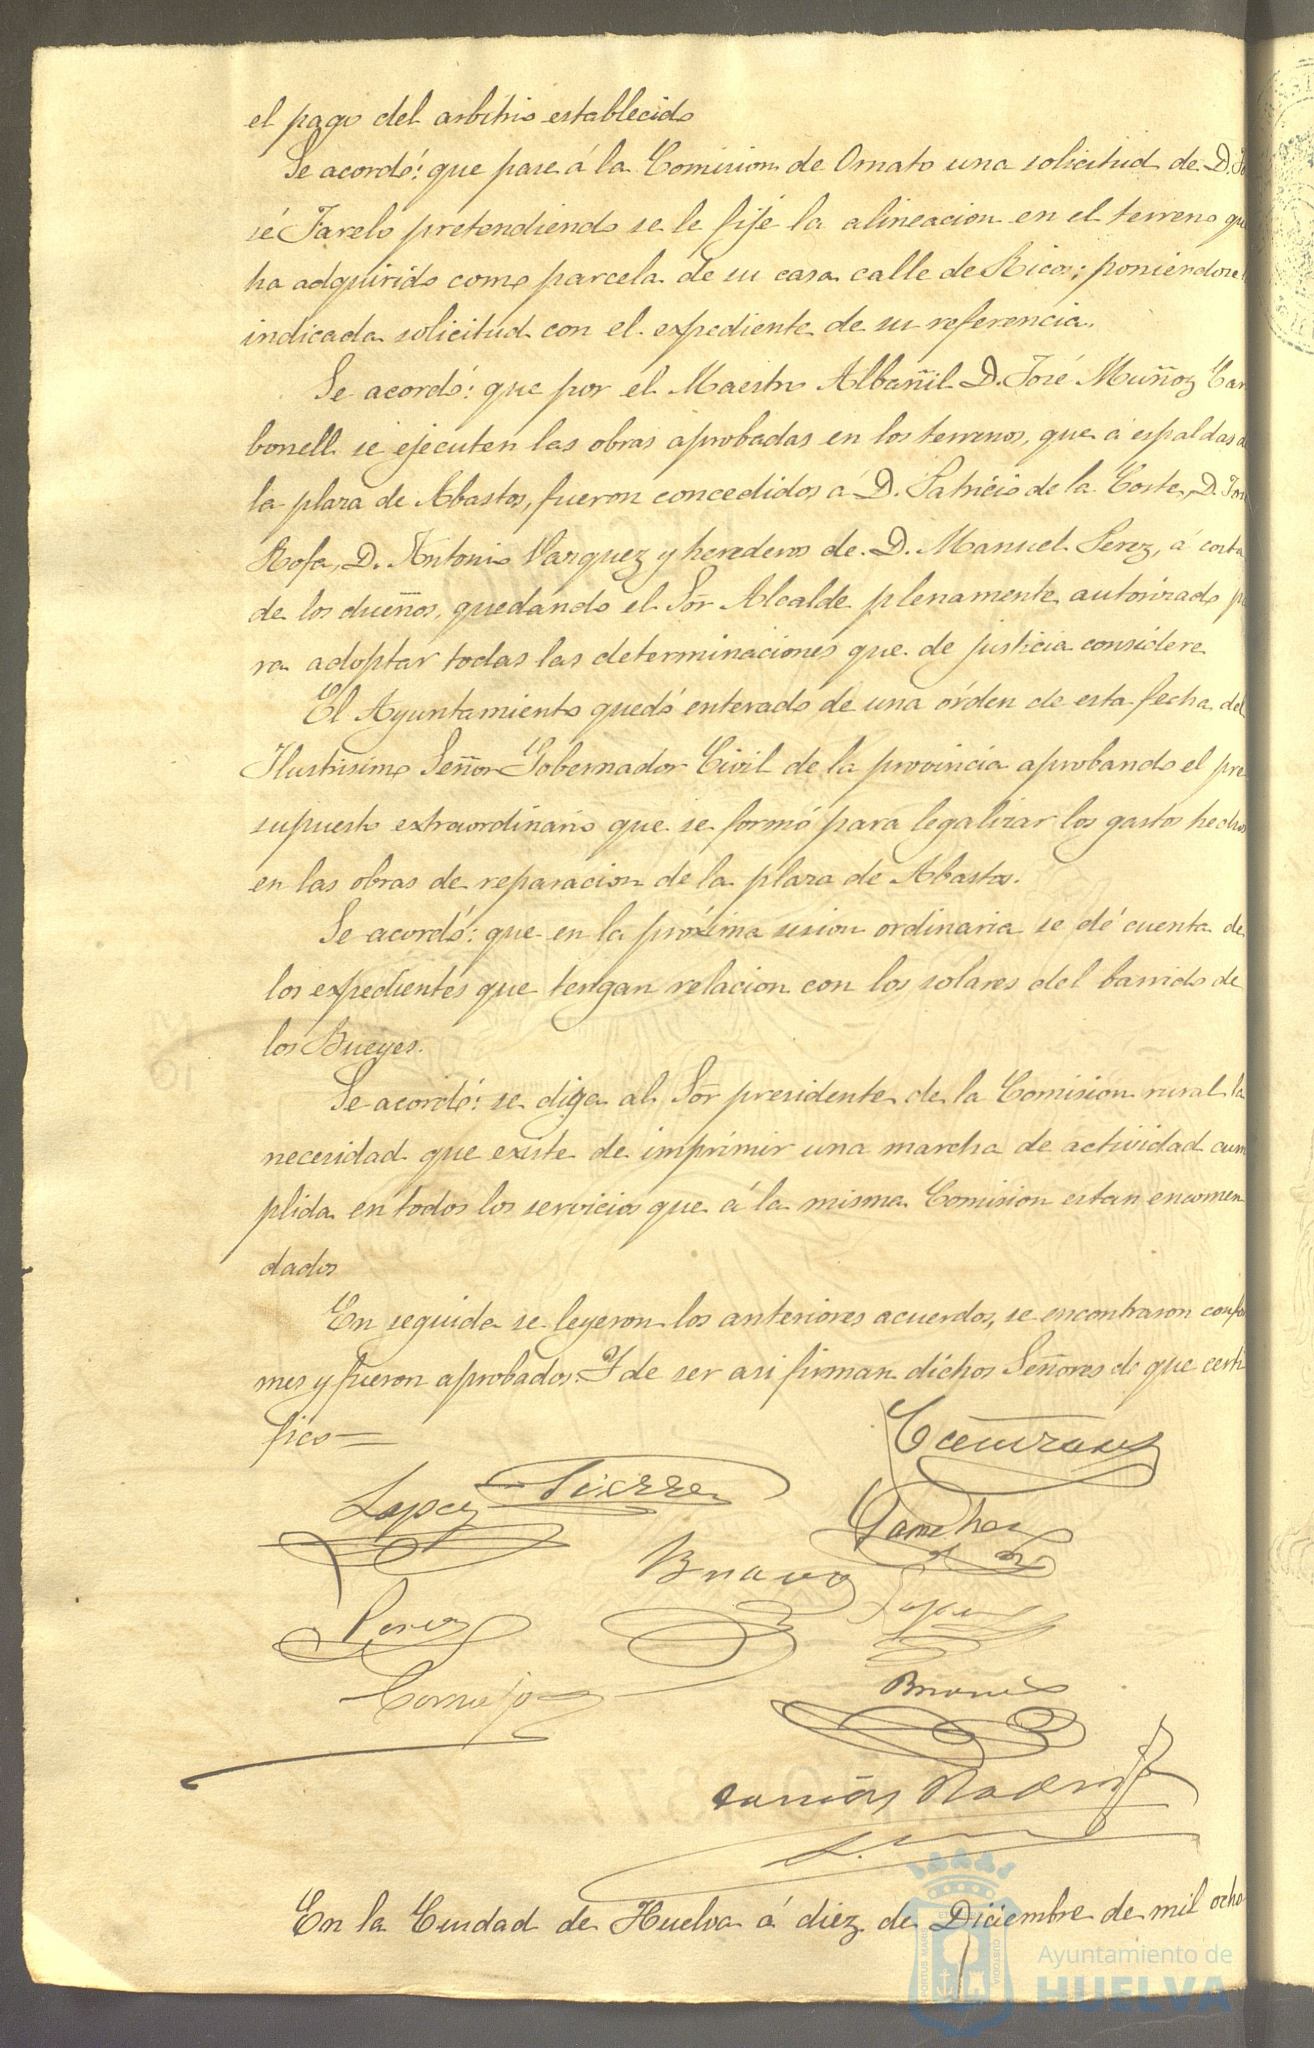 el pago del arbitrio establecido
Se acordó: que pase á la Comision de Ornato una solicitud de D. Jo
sé Farelo pretendiendo se le fije la alineacion en el terreno que
ha adquirido como parcela de su casa calle de Ricos; poniendose
indicada solicitud con el expediente de su referencia.
Se acordó: que por el Maestro Albañil D. José Muñoz Car
bonell se ejecuten las obras aprobadas en los terrenos, que á espaldas
la plaza de Abastos, fueron concedidos á D. Patricio de la Corte, D. José
Rofa, D. Antonio Vazquez y herederos de D. Manuel Perez, á costa
de los dueños, quedando el Sor Alcalde plenamente autorizado pa
ra adoptar todas las determinaciones que de justicia considere
El Ayuntamiento quedó enterado de una órden de esta fecha del
Ilustrisimo Señor Gobernador Civil de la provincia aprobando el pre
supuesto extraordinario que se formó para legalizar los gastos hechos
en las obras de reparacion de la plaza de Abastos.
Se acordó: que en la próxima sesion ordinaria se dé cuenta de
los expedientes que tengan relacion con los solares del barrido de
los Bueyes.
Se acordó: se diga al Sor presidente de la Comision rural la
necesidad que existe de imprimir una marcha de actividad cum
plida en todos los servicios que á la misma Comision estan encomen
dados
En seguida se leyeron los anteriores acuerdos, se encontraron confor
mes y fueron aprobados. Y de ser asi firman dichos Señores de que certi
fico=
Lopez Pierre
Sanchez
Bravo
Perez
Lopez
Cornejo
En la Ciudad de Huelva á diez de Diciembre de mil ocho
PORTUS MARIS
CUSTODIA
Ayuntamiento de
HUELVA